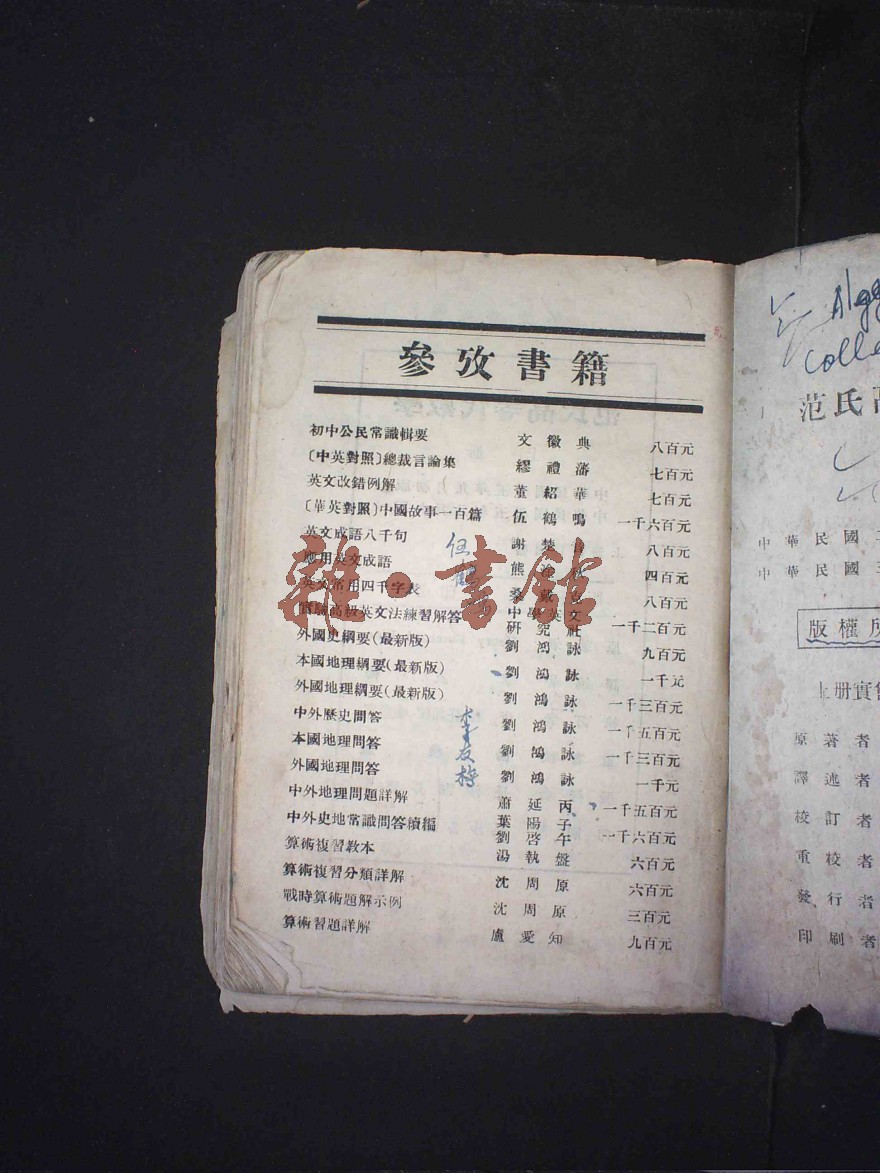 參攷書籍
初中公民常識輯要 文徽典 八百元
〔中英對照〕總裁言論集 繆禮藩 七百元
英文改錯例解 董紹華 七百元
〔華英對照〕中國故事一百篇 伍鶴鳴 一千六百元
英文成語八千句 謝 八百元
應用英文成語 熊 四百元
英文常用四千字表 桑 八百元
實驗高級英文法練習解答 中學英文研究社 一千二百元
外國史綱要(最新版) 劉鴻詠 九百元
本國地理綱要(最新版) 劉鴻詠 一千元
外國地理綱要(最新版) 劉鴻詠 一千三百元
中外歷史問答 劉鴻詠 一千五百元
本國地理問答 劉鴻詠 一千三百元
外國地理問答 劉鴻詠 一千元
中外地理問題詳解 蕭延丙 一千五百元
中外史地常識問答續編 葉陽子 劉啓午 一千六百元
算術複習教本 湯執盤 六百元
算術複習分類詳解 沈周原 六百元
戰時算術題解示例 沈周原 三百元
算術習題詳解 盧愛知 九百元
雜·書館
伍
李友梅
Alg
Colle
范氏高
中華民國三
中華民國三
版權所
上册實售
原著者
譯述者
校訂者
重校者
發行者
印刷者